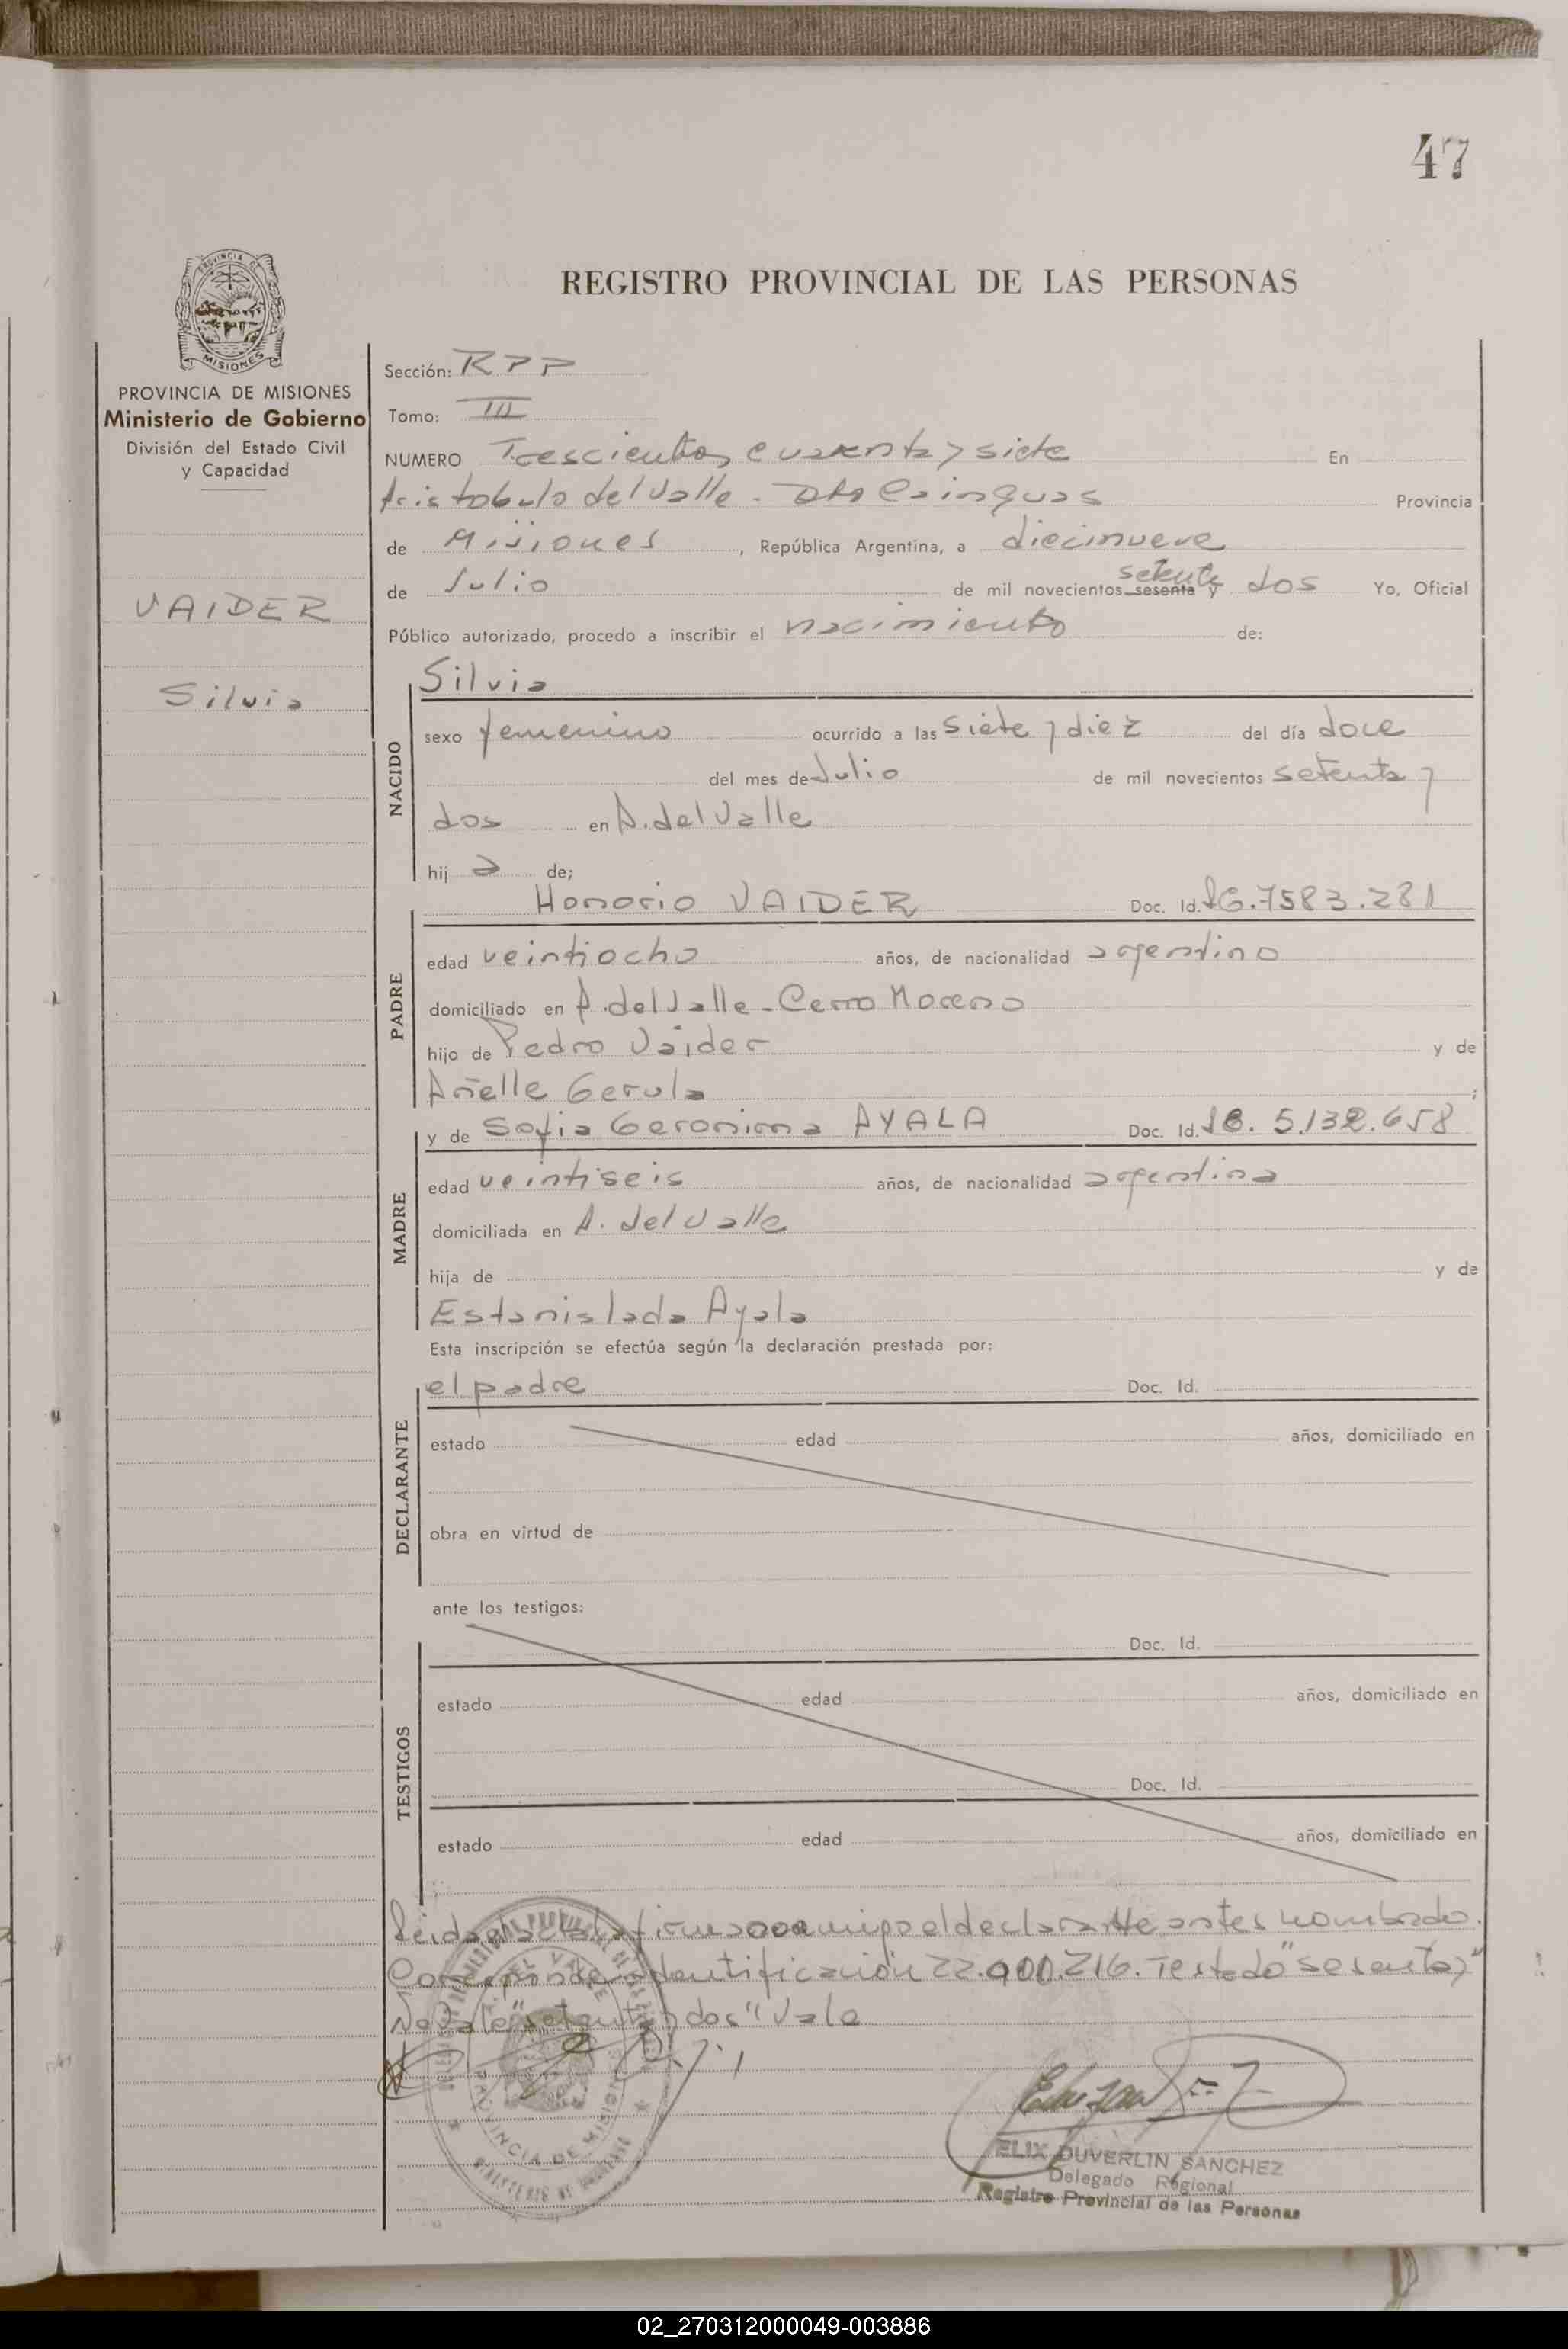 47
REGISTRO PROVINCIAL DE LAS PERSONAS
PROVINCIA DE MISIONES
Ministerio de Gobierno
División del Estado Civil
y Capacidad
VAIDER
Silvia
Sección: RPP
Tomo: III
NUMERO Trescientos cuarenta y siete En
Aristobulo del Valle - Dto Cainguas Provincia
de Misiones, República Argentina, a diecinueve
de Julio de mil novecientos sesenta y setenta y dos Yo, Oficial
Público autorizado, procedo a inscribir el nacimiento de:
NACIDO
Silvia
sexo femenino ocurrido a las siete y diez del día doce
del mes de Julio de mil novecientos setenta y
dos en A. del Valle
hij a de;
PADRE
Honorio VAIDER Doc. Id. 7583.281
edad veintiocho años, de nacionalidad argentino
domiciliado en A. del Valle - Cerro Moreno
hijo de Pedro Vaider y de
Añelle Gerula ;
MADRE
y de Sofia Geronima AYALA Doc. Id. 5.132.658
edad veintiseis años, de nacionalidad argentina
domiciliada en A. del Valle
hija de y de
Estanislada Ayala
Esta inscripción se efectúa según la declaración prestada por:
DECLARANTE
el padre Doc. Id.
estado edad años, domiciliado en
obra en virtud de
ante los testigos:
TESTIGOS
Doc. Id.
estado edad años, domiciliado en
Doc. Id.
estado edad años, domiciliado en
Leida el acta firma conmigo el declarante antes nombrado.
Corresponde identificación 22.900.216. Testado "sesenta y"
No vale "setenta y dos" Vale
ELIX DUVERLIN SANCHEZ
Delegado Regional
Registro Provincial de las Personas
02_270312000049-003886